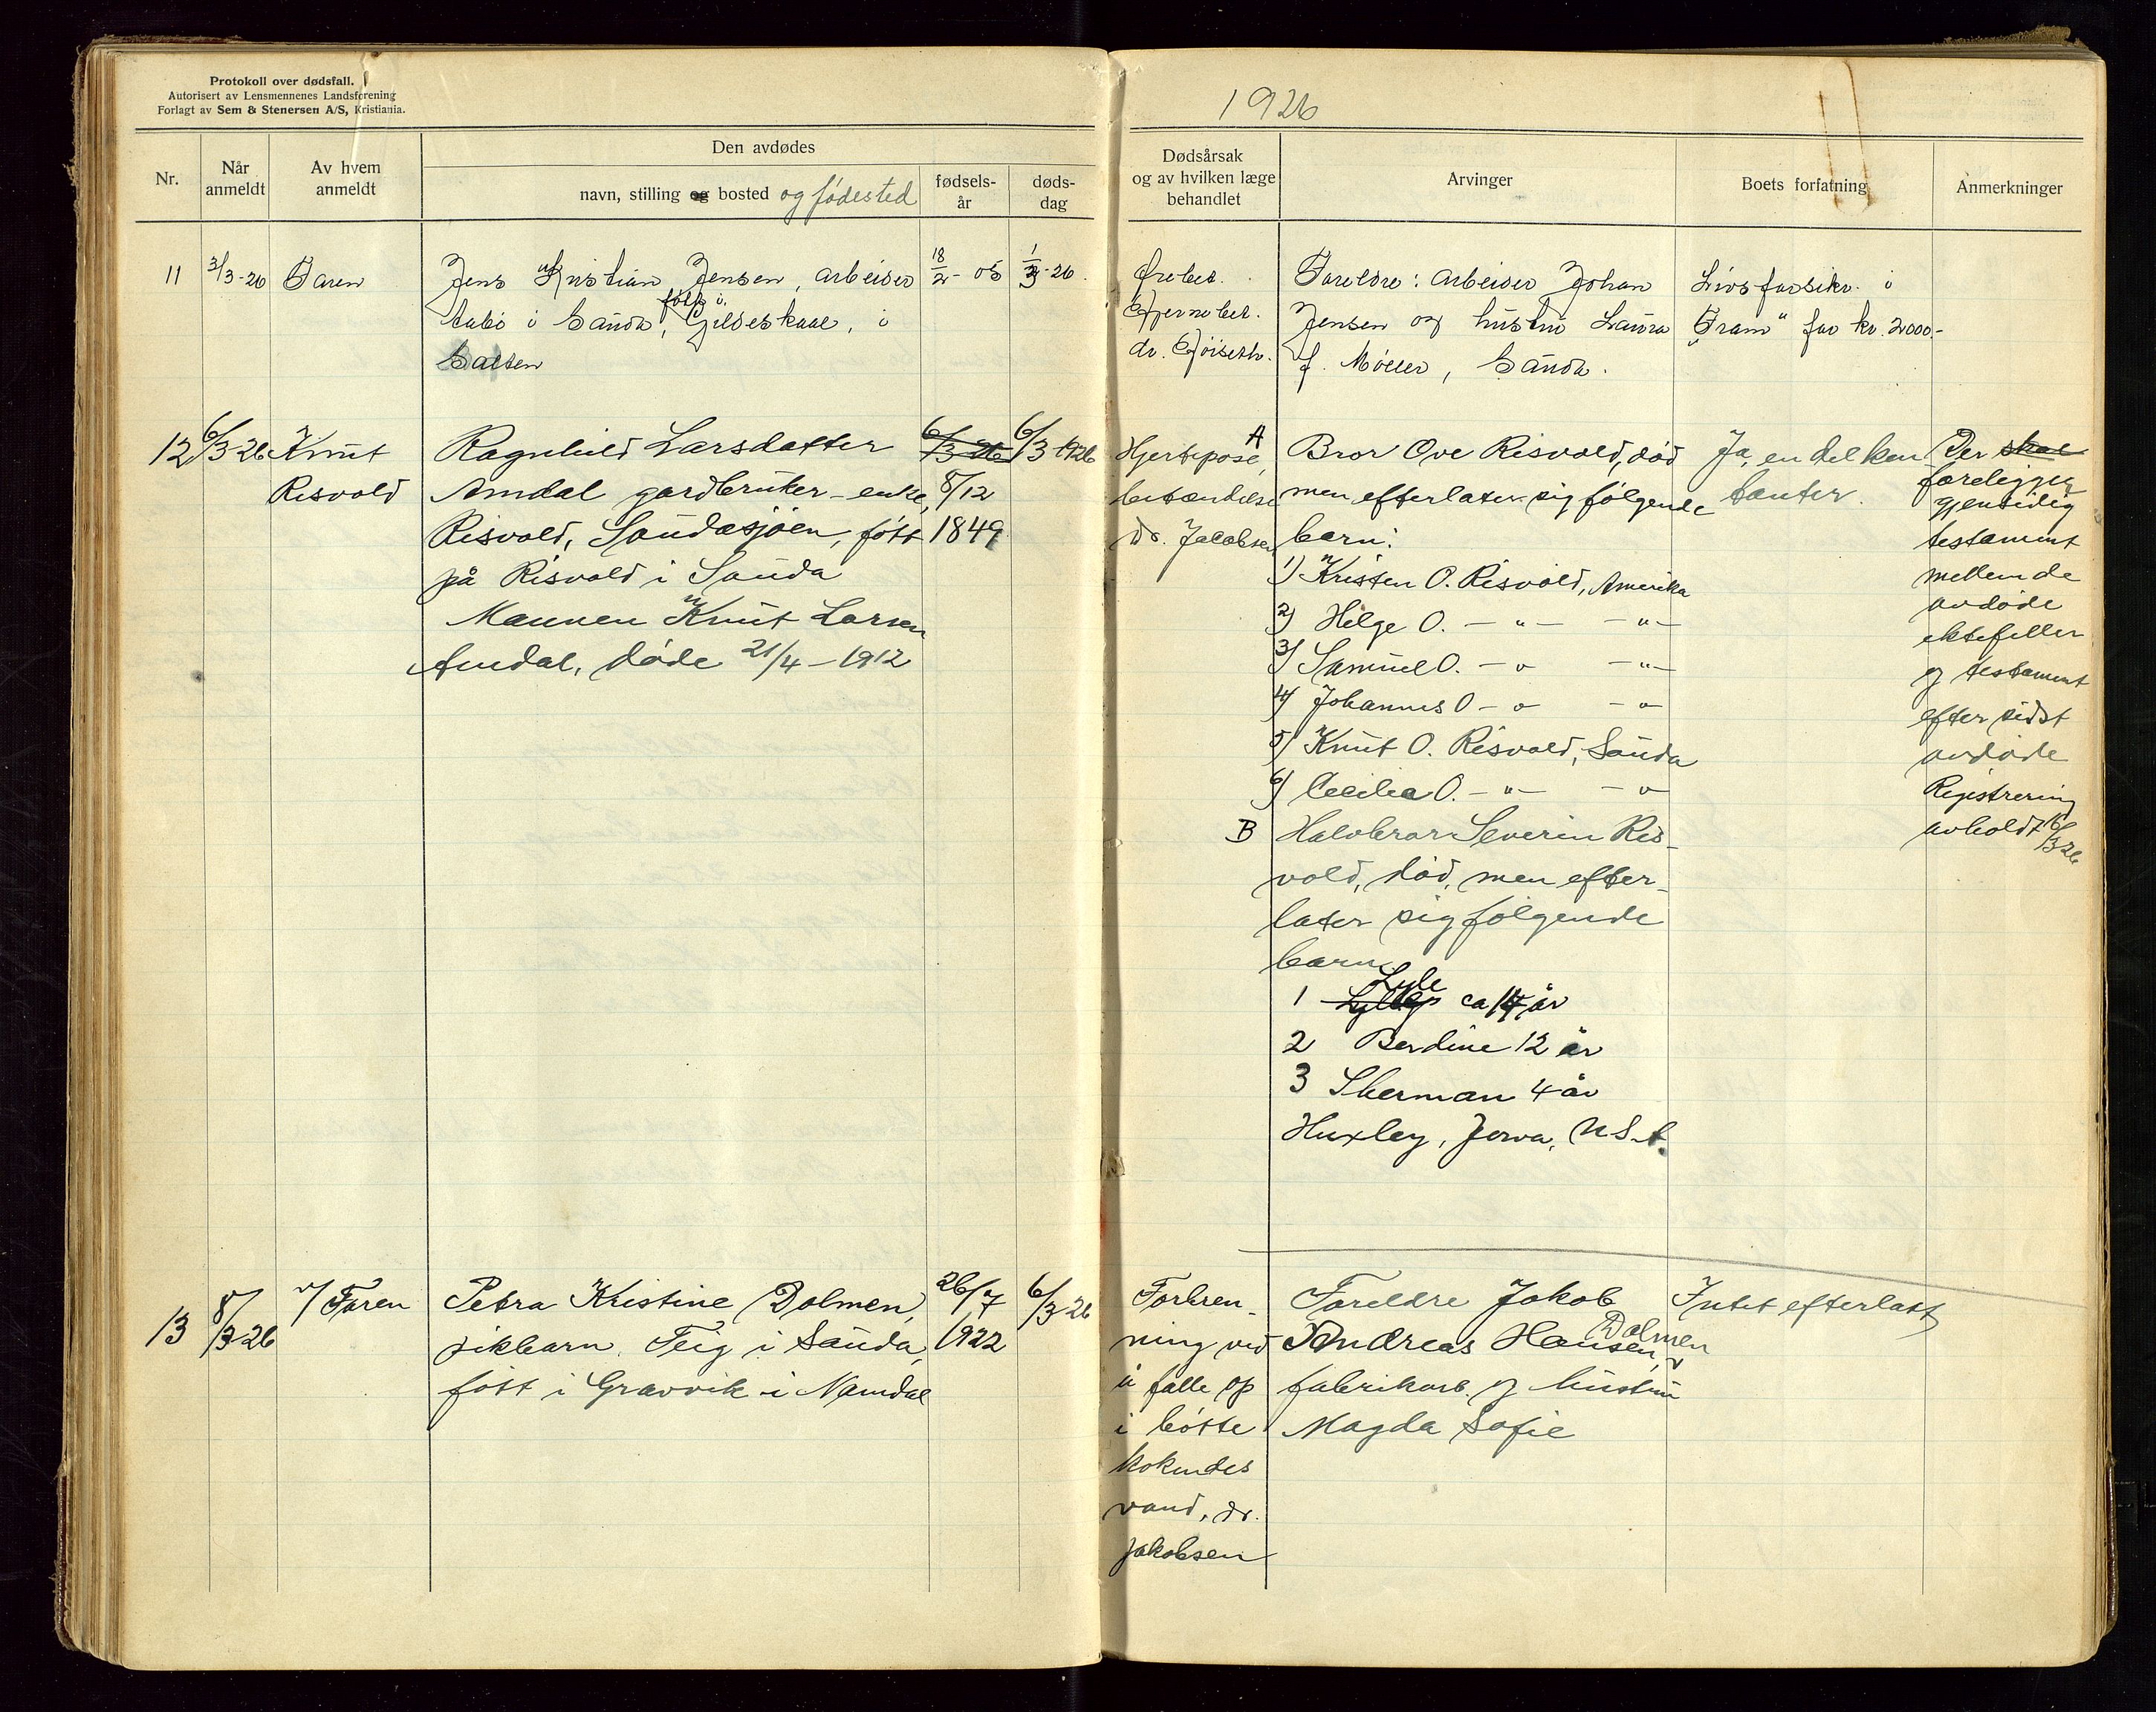 Protokoll over dødsfall.
Autorisert av Lensmennenes Landsforening
Forlagt av Sem & Stenersen A/S, Kristiania.
1926
Nr.
Når
anmeldt
Av hvem
anmeldt
Den avdødes
navn, stilling og bosted og fødested
fødsels-
år
døds-
dag
Dødsårsak
og av hvilken læge
behandlet
Arvinger
Boets forfatning
Anmerkninger
11 3/3-26 Faren
Jens Kristian Jensen, arbeider
i Sauda, født i Gildeskaal, i
Salten
18/2-05
1/3-26.
Ørebet.
Hjernebet.
dr.
Foreldre: arbeider Johan
Jensen og hustru Laura
f. Møller, Sauda.
Livsforsikr. i
"Fram" for kr. 2000-
12 6/3-26 Knut
Risvold
Ragnhild Larsdatter
Amdal gardbruker-enke,
Risvold, Saudasjøen, født
på Risvold i Sauda
Mannen Knut Larsen
Amdal, døde 21/4-1912
6/3-26
8/12
1849
6/3 1926
Hjertepose,
betændelse
Dr. Jacobsen
A Bror Ove Risvold, død
men efterlater sig følgende
barn:
1) Kristen O. Risvold, Amerika
2) Helge O. -"- -"-
3) Samuel O. -"- -"-
4) Johannes O -"- -"-
5) Knut O. Risvold, Sauda
6) Cecilia O. -"- -"-
B Halvbror Severin Ris-
vold, død, men efter-
later sig følgende
barn
Lyle
1 ca 14 år
2 Berdine 12 år
3 Sherman 4 år
Huxley, Jowa, U.S.A.
Ja, en del kon
tanter.
Der skal
foreligger
gjensidig
testament
mellem de
avdøde
ektefeller
og testament
efter sidst
avdøde
Registrering
avholdt 16/3 26
13 8/3-26 v/ Faren
Petra Kristine Dolmen,
pikbarn, Teig i Sauda,
født i Gravvik i Namdal
26/7
1922
6/3-26
Forbren-
ning ved
å falle op
i bøtte
kokendes
vand, dr.
Jakobsen
Foreldre Jakob
Andreas Hansen Dolmen,
fabrikarb. og hustru
Magda Sofie
Intet efterlatt